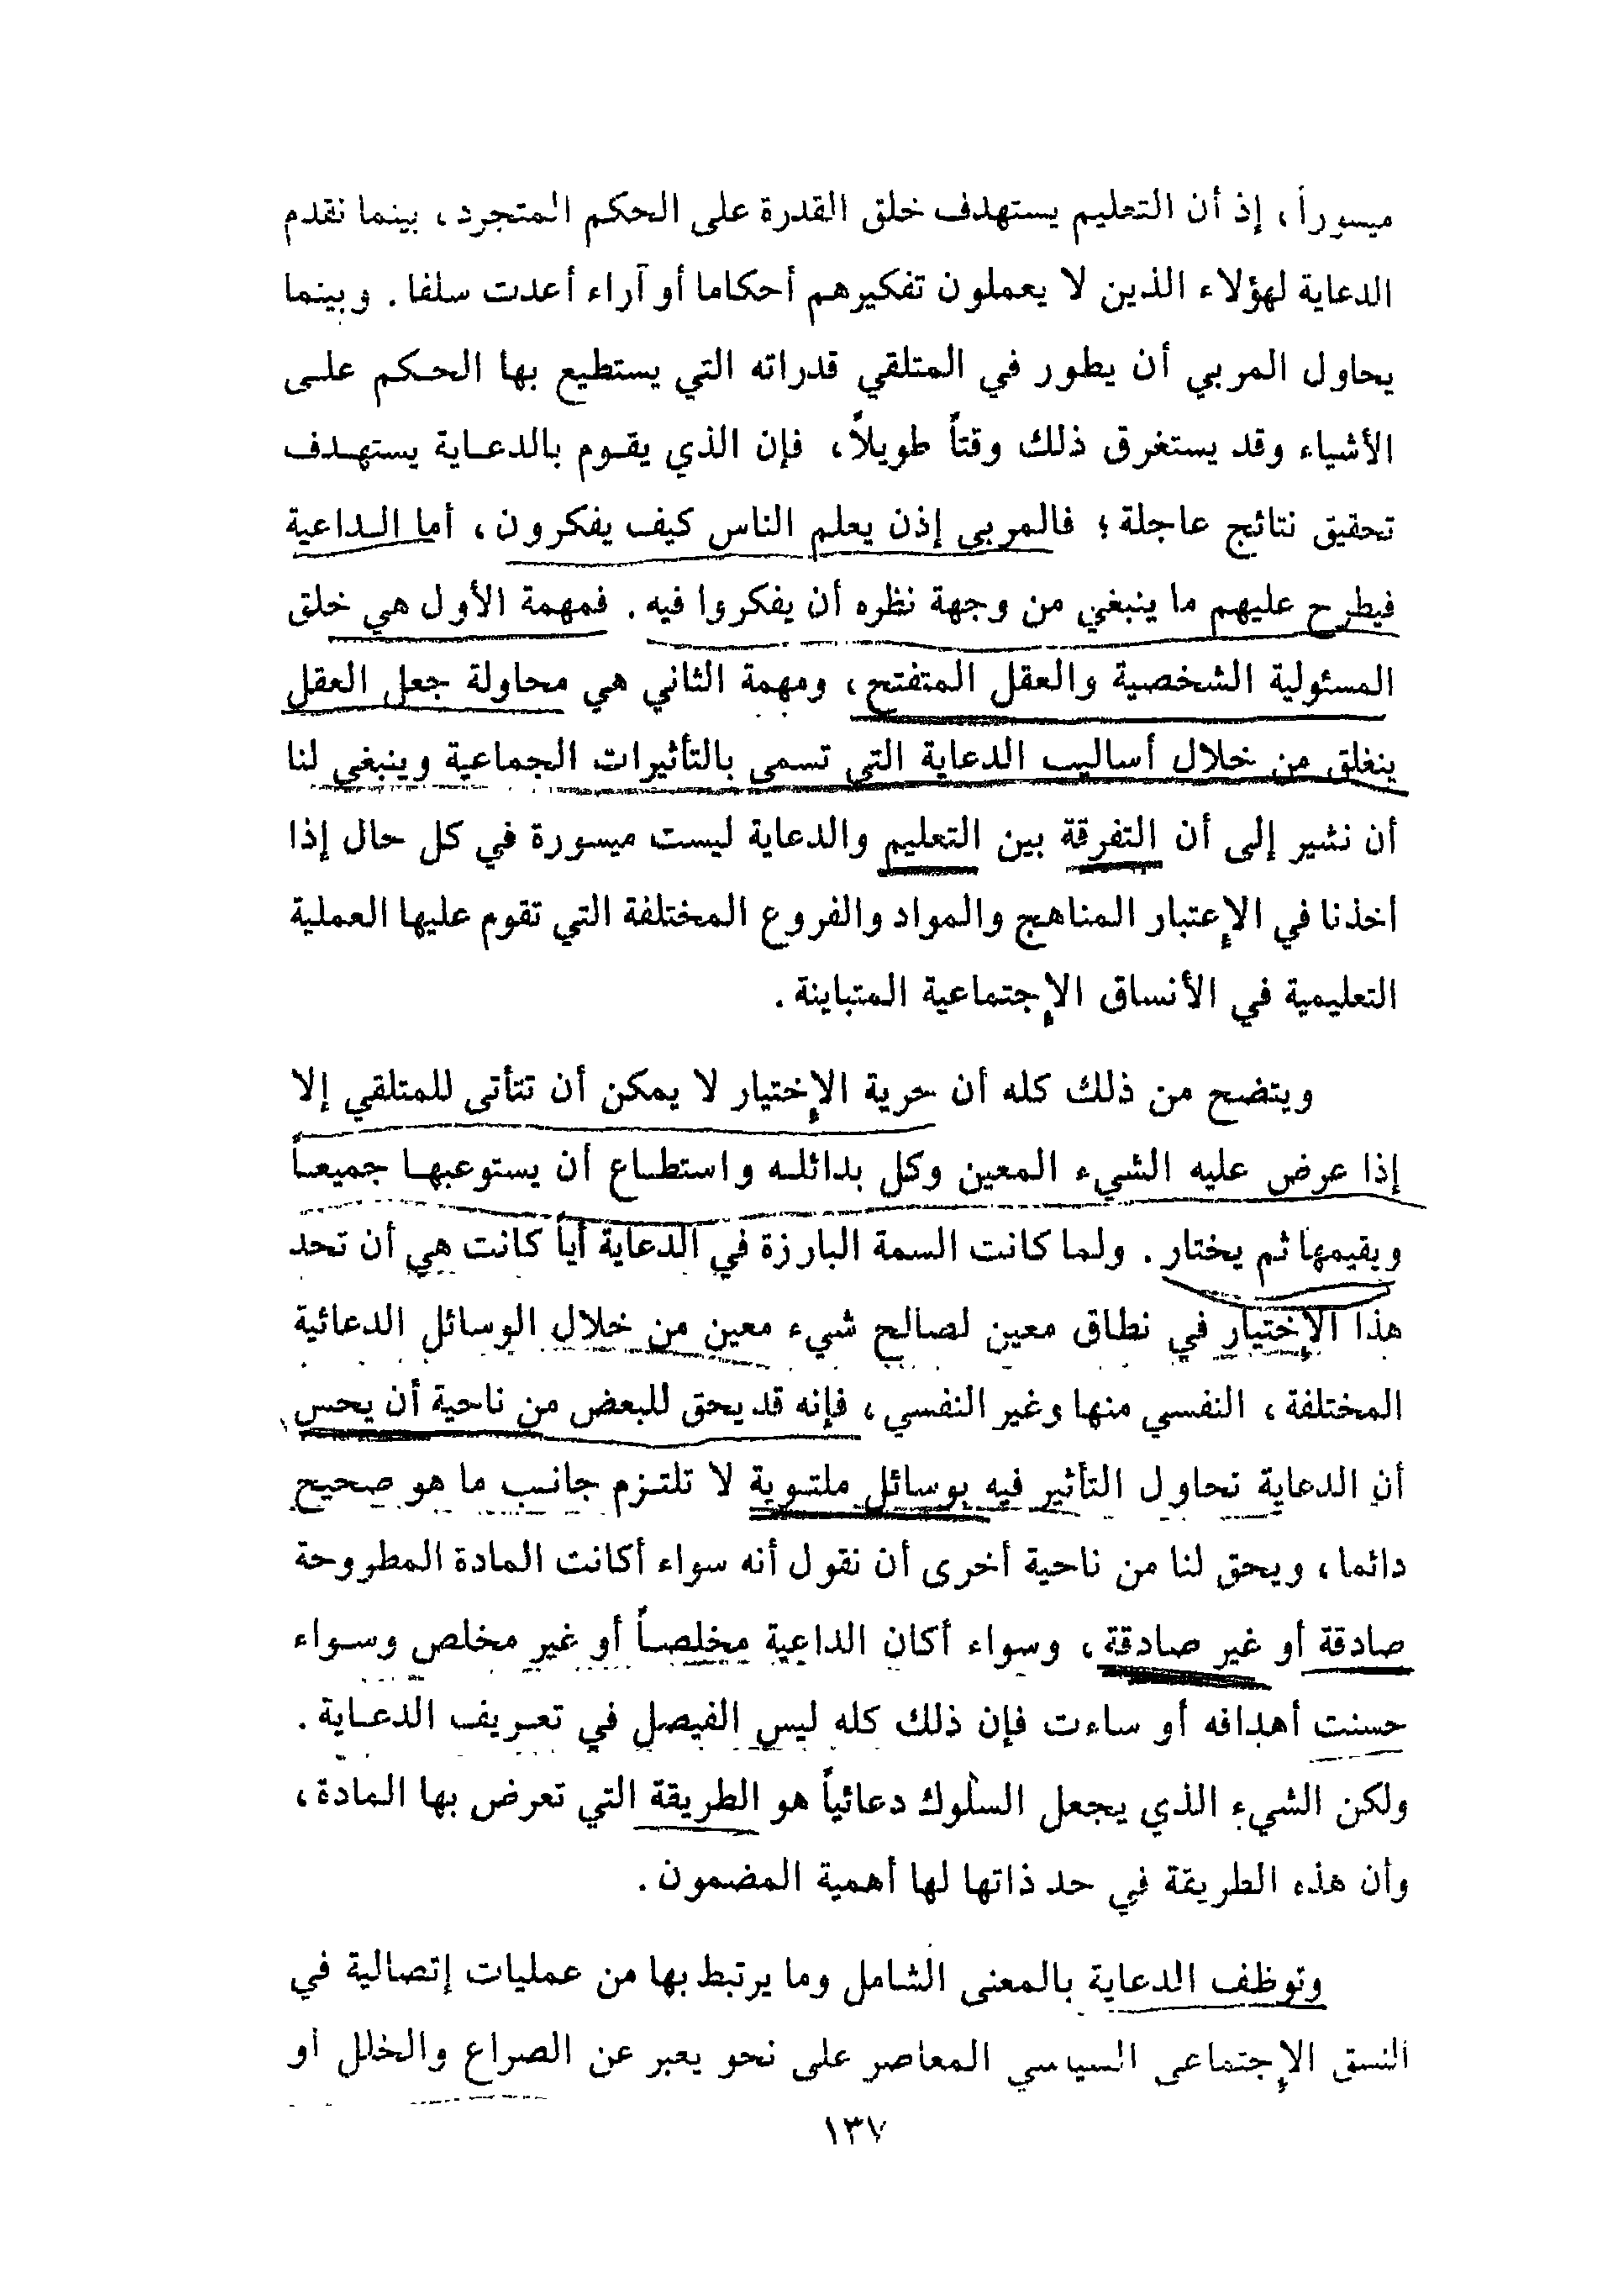 ميسوراً ، إذ أن التعليم يستهدف خلق القدرة على الحكم المتجرد ، بينما نقدم
الدعاية لهؤلاء الذين لا يعملون تفكيرهم أحكاما أو آراء أعدت سلفا . وبينما
يحاول المربي أن يطور في المتلقي قدراته التي يستطيع بها الحكم على
الأشياء وقد يستغرق ذلك وقتاً طويلاً ، فإن الذي يقوم بالدعاية يستهدف
تحقيق نتائج عاجلة ؛ فالمربي إذن يعلم الناس كيف يفكرون ، أما الداعية
فيطرح عليهم ما ينبغي من وجهة نظره أن يفكروا فيه . فمهمة الأول هي خلق
المسئولية الشخصية والعقل المتفتح ، ومهمة الثاني هي محاولة جعل العقل
ينغلق من خلال أساليب الدعاية التي تسمى بالتأثيرات الجماعية وينبغي لنا
أن نشير إلى أن التفرقة بين التعليم والدعاية ليست ميسورة في كل حال إذا
أخذنا في الإعتبار المناهج والمواد والفروع المختلفة التي تقوم عليها العملية
التعليمية في الأنساق الإجتماعية المتباينة .
ويتضح من ذلك كله أن حرية الإختيار لا يمكن أن تتأتى للمتلقي إلا
إذا عرض عليه الشيء المعين وكل بدائله واستطاع أن يستوعبها جميعاً
ويقيمها ثم يختار . ولما كانت السمة البارزة في الدعاية أياً كانت هي أن تحد
هذا الإختيار في نطاق معين لصالح شيء معين من خلال الوسائل الدعائية
المختلفة ، النفسي منها وغير النفسي ، فإنه قد يحق للبعض من ناحية أن يحس
أن الدعاية تحاول التأثير فيه بوسائل ملتوية لا تلتزم جانب ما هو صحيح
دائما ، ويحق لنا من ناحية أخرى أن نقول أنه سواء أكانت المادة المطروحة
صادقة أو غير صادقة ، وسواء أكان الداعية مخلصاً أو غير مخلص وسواء
حسنت أهدافه أو ساءت فإن ذلك كله ليس الفيصل في تعريف الدعاية .
ولكن الشيء الذي يجعل السلوك دعائياً هو الطريقة التي تعرض بها المادة ،
وأن هذه الطريقة في حد ذاتها لها أهمية المضمون .
وتوظف الدعاية بالمعنى الشامل وما يرتبط بها من عمليات إتصالية في
النسق الإجتماعي السياسي المعاصر على نحو يعبر عن الصراع والخلل أو
١٣٧